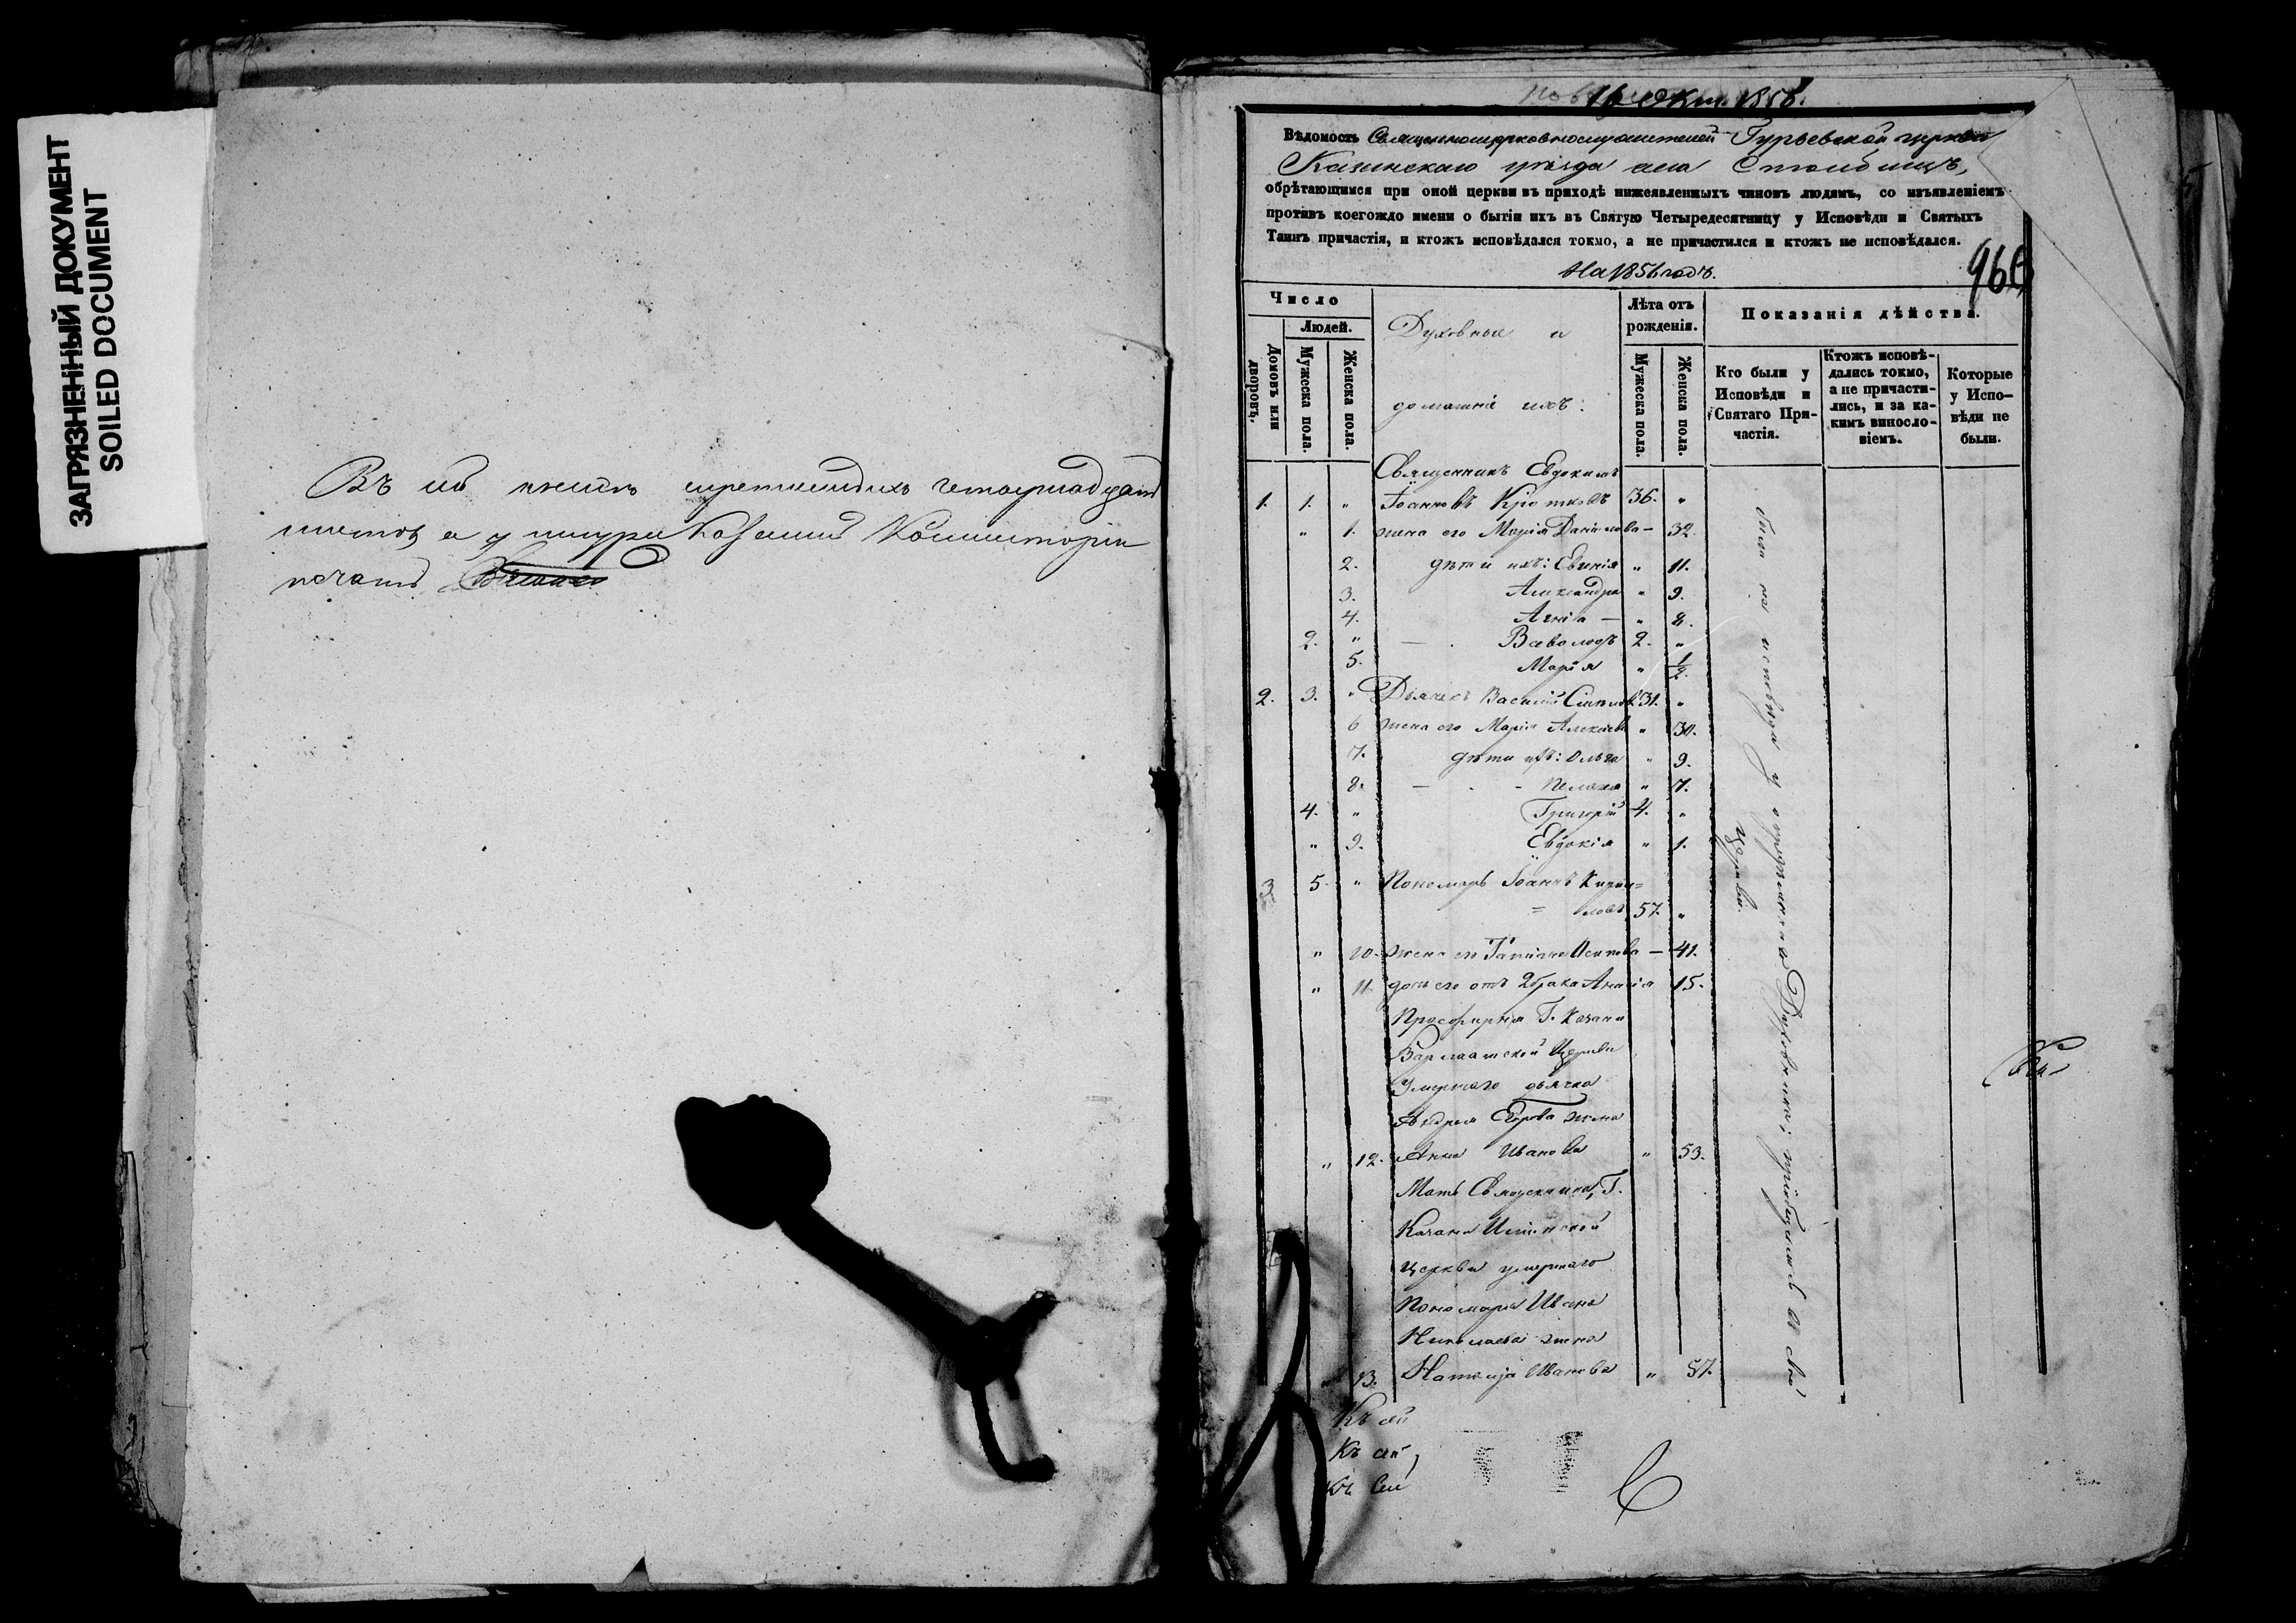 ЗАГРЯЗНЕННЫЙ ДОКУМЕНТ
SOILED DOCUMENT
Въ сей книгѣ скрепленныхъ четырнадцать
листов и у шнура Казенная Консисторіи
печать
16 Окт. 1856.
Вѣдомость Священноцерковнослужителей Гурьевской церкви
Казанскаго уѣзда села Столбищъ,
обрѣтающимся при оной церкви въ приходѣ нижеявленныхъ чиновъ людямъ, со изъявленіемъ
противъ коегождо имени о бытіи ихъ въ Святую Четыредесятницу у Исповѣди и Святыхъ
Таинъ причастія, и ктожъ исповѣдался токмо, а не причастился и ктожъ не исповѣдался.
На 1856 годъ.
966
Число
Людей.
Домовъ или дворовъ.
Мужеска пола.
Женска пола.
Духовные и
домашніе ихъ:
Лѣта отъ рожденія.
Мужеска пола.
Женска пола.
Показанія дѣйства.
Кто были у Исповѣди и Святаго Причастія.
Ктожъ исповѣдались токмо, а не причастились, и за какимъ винословіемъ.
Которые у Исповѣди не были.
Священникъ Евдокимъ
1. 1. " Іоанновъ Кротковъ 36. "
" 1. жена его Марія Данилова — 32.
2. дѣти ихъ: Евгенія " 11.
3. Александра " 9.
4. Агнія — " 8.
2. " — Всеволодъ 2. "
5. Марія " 1/2.
2. 3. " Дьячекъ Василій 31. "
6 жена его Марія Алексѣева " 30.
7. дѣти ихъ: Ольга " 9.
8. — - Пелагія " 7.
4. " Григорій 4. "
" 9. Евдокія " 1.
3 5. " Пономарь Іоаннъ Кирил=
= ловъ 57. "
" 10. жена его Татіана Осипова — 41.
" 11. дочь его отъ 2 брака 15.
Просфирня Г. Казани
Варлаамской Церкви
Умершаго дьячка
Андрея Егорова жена
" 12. Анна Иванова " 53.
Мать Священника, Г.
Казани
Церкви умершаго
Пономаря Ивана
Николаева жена
" 13. Наталья Иванова " 57.
были на исповѣди у
Къ сей
Къ сей
Къ сей